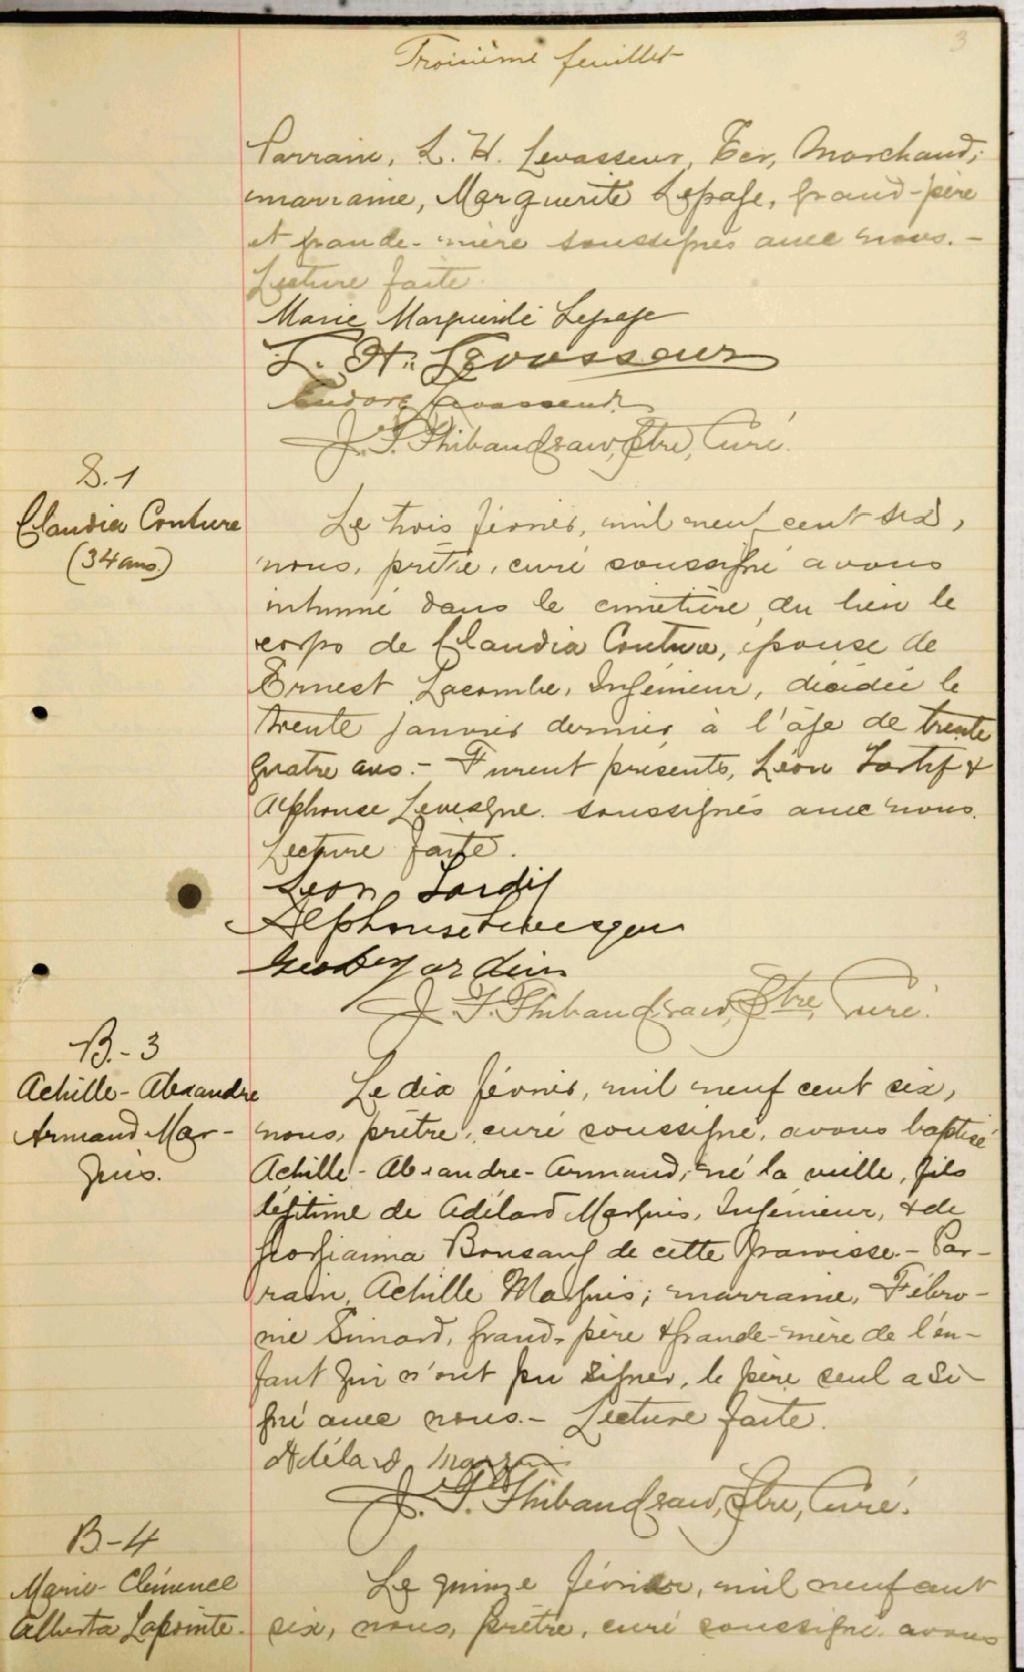 Troisième feuillet
3
Parrain, L. H. Levasseur, Ecr, Marchand;
marraine, Marguerite Lepage, grand-père
et grande-mère soussignés avec nous.-
Lecture faite.
Marie Marguerite Lepage
L. H. Levasseur
Levasseur
J. T. Thibaudeau, Ptre, Curé.
S. 1
Claudia Couture
(34 ans.)
Le trois février, mil neuf cent six,
nous, prêtre, curé soussigné avons
inhumé dans le cimetière du lieu le
corps de Claudia Couture, épouse de
Ernest Lacombe, Ingénieur, décédée le
trente janvier dernier à l'âge de trente
quatre ans.- Furent présents, Léon Tardif &
Alphonse Levesque soussignés avec nous.
Lecture faite.
Leon Tardif
Alphonse Levesque
J. T. Thibaudeau, Ptre, Curé.
B.-3
Achille-Alexandre
Armand Mar-
quis.
Le dix février, mil neuf cent six,
nous, prêtre, curé soussigné, avons baptisé
Achille-Alexandre-Armand, né la veille, fils
légitime de Adélard Marquis, Ingénieur, & de
Georgianna de cette paroisse.- Par-
rain, Achille Marquis; marraine, Fébro-
nie Simard, grand-père & grande-mère de l'en-
fant qui n'ont pu signer, le père seul a si-
gné avec nous.- Lecture faite.
Adélard Marquis
J. T. Thibaudeau, Ptre, Curé.
B-4
Marie-Clémence
Alberta Lapointe.
Le quinze février, mil neuf cent
six, nous, prêtre, curé soussigné avons